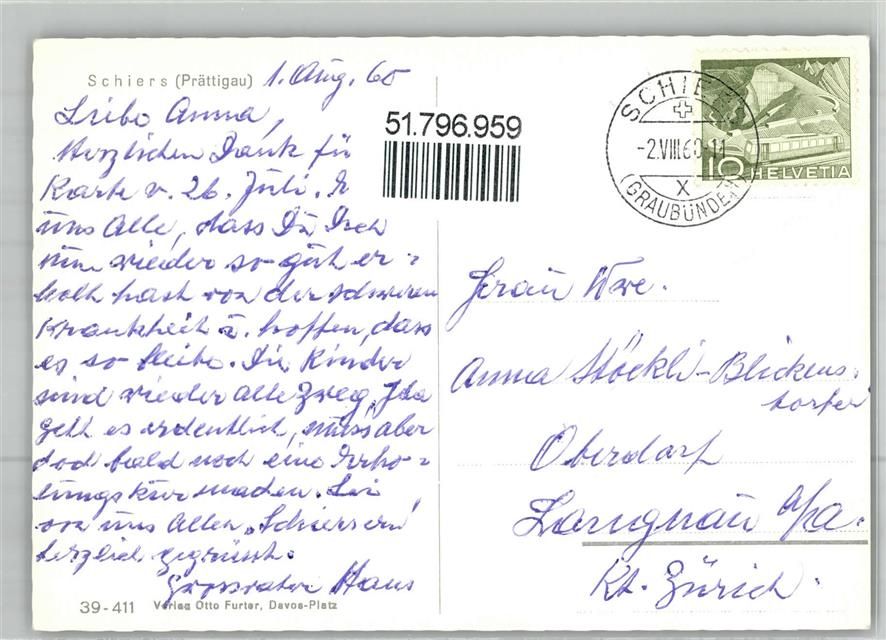 Schiers (Prättigau) 1. Aug. 60
Liebe Anna,
Herzlichen Dank für
Karte v. 26. Juli.
uns Alle, dass Du Dich
nun wieder so gut er-
holt hast von der schweren
Krankheit u. hoffen, dass
es so bleibe. Die Kinder
sind wieder alle zweg, Ida
geht es ordentlich, muss aber
doch bald noch eine Erho-
lungskur machen. Sei
von uns Allen „Schiersern"
herzlich gegrüsst.
Grossvater Hans
39-411 Verlag Otto Furter, Davos-Platz
51.796.959
SCHIERS
-2.VIII.60-11
X
(GRAUBÜNDEN)
10 HELVETIA
Frau Wwe.
Anna Stöckli-Blickens-
dorfer
Oberdorf
Langnau a/A.
Kt. Zürich.